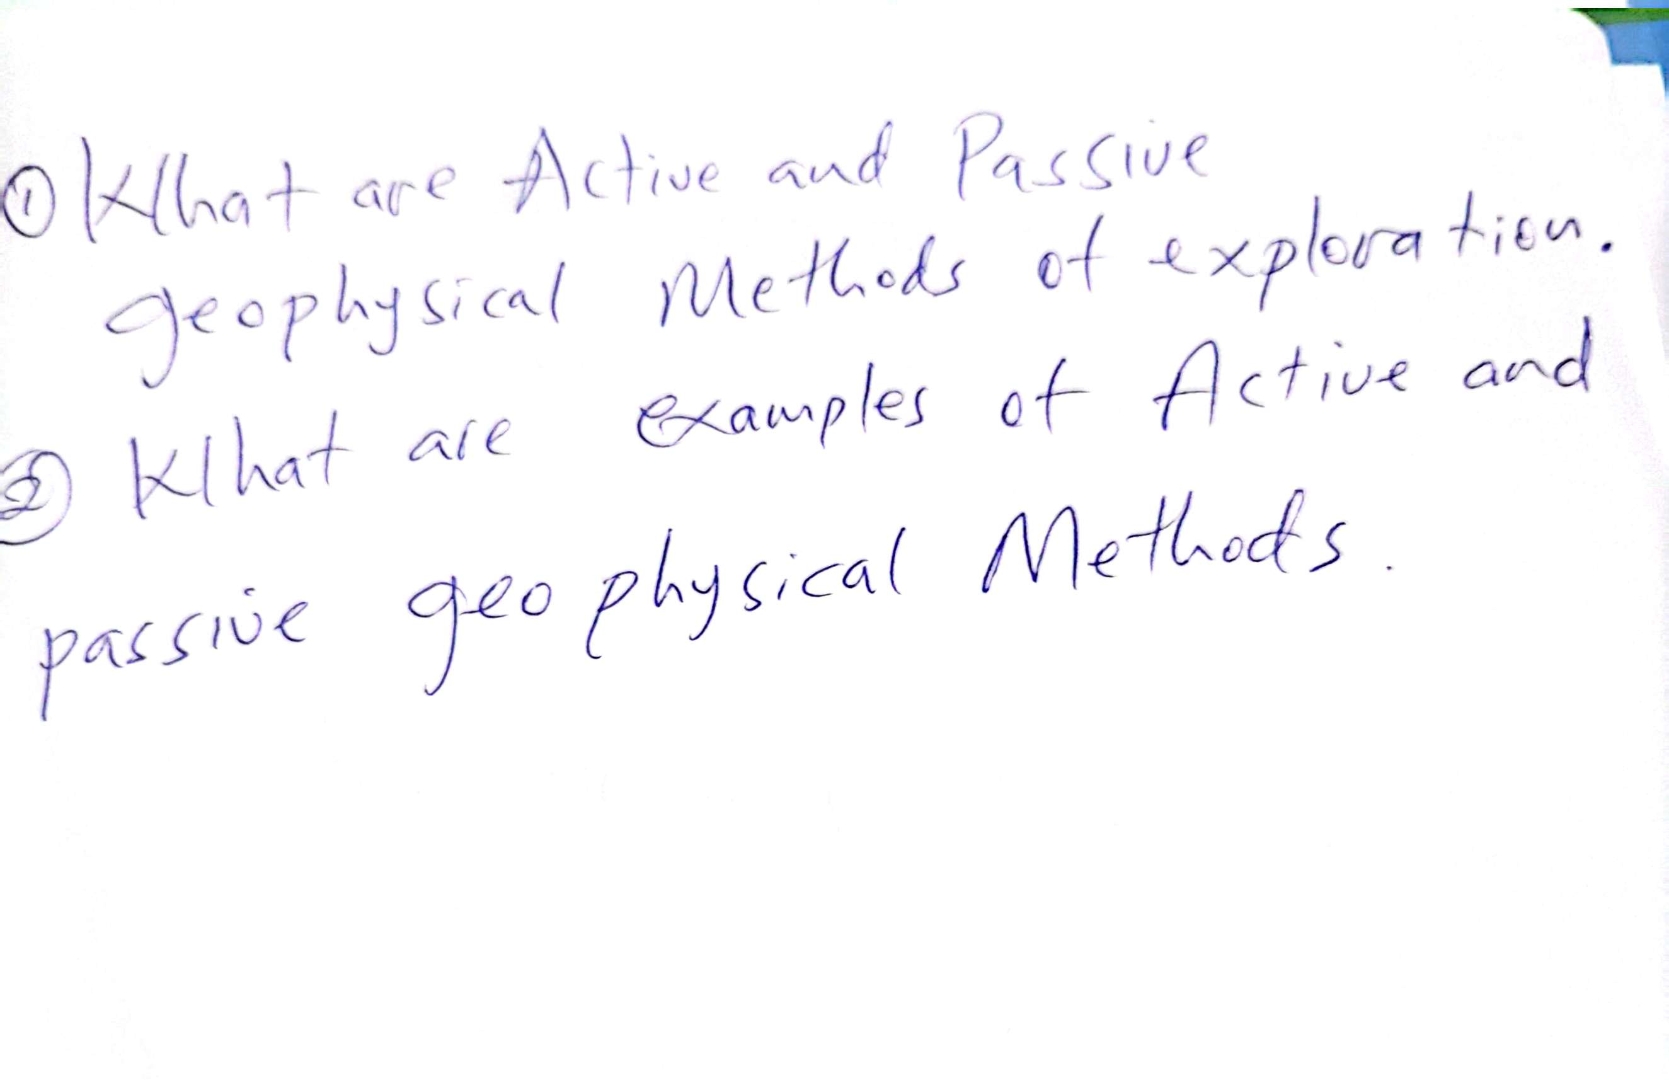 ① What are Active and Passive
geophysical Methods of exploration.
② What are examples of Active and
passive geophysical Methods.